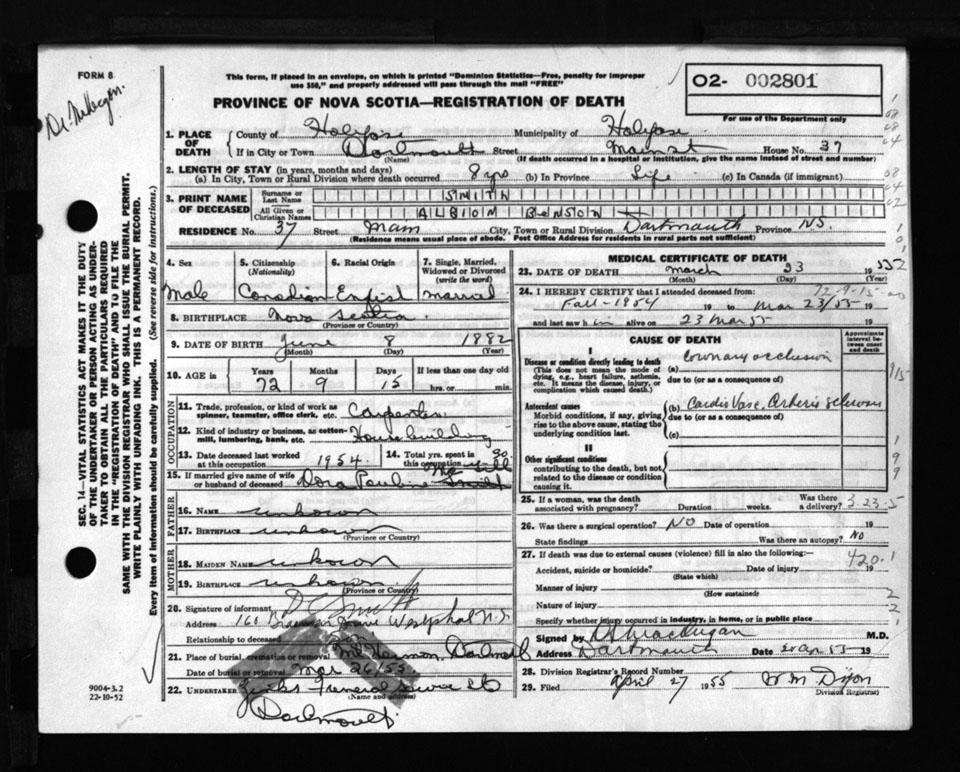 FORM 8
This form, if placed in an envelope, on which is printed "Dominion Statistics—Free, penalty for improper
use $50," and properly addressed will pass through the mail "FREE"
PROVINCE OF NOVA SCOTIA—REGISTRATION OF DEATH
02- 002801
For use of the Department only
1. PLACE OF DEATH County of Halifax Municipality of Halifax
If in City or Town Dartmouth Street Main st House No. 37
(Name) (If death occurred in a hospital or institution, give the name instead of street and number)
2. LENGTH OF STAY (in years, months and days)
(a) In City, Town or Rural Division where death occurred 8 yrs (b) In Province Life (c) In Canada (if immigrant)
3. PRINT NAME OF DECEASED
Surname or Last Name SMITH
All Given or Christian Names ALBION BENSON
RESIDENCE No. 37 Street Main City, Town or Rural Division Dartmouth Province N.S.
(Residence means usual place of abode. Post Office Address for residents in rural parts not sufficient)
4. Sex 5. Citizenship (Nationality) 6. Racial Origin 7. Single, Married, Widowed or Divorced (write the word)
Male Canadian Married
8. BIRTHPLACE Nova Scotia
(Province or Country)
9. DATE OF BIRTH June 8 1882
(Month) (Day) (Year)
10. AGE Years Months Days If less than one day
72 9 15 hrs. or min.
OCCUPATION
11. Trade, profession, or kind of work as
spinner, teamster, office clerk, etc. Carpenter
12. Kind of industry or business, as cotton-
mill, lumbering, bank, etc. House building
13. Date deceased last worked
at this occupation 1954
14. Total yrs. spent in
this occupation 30
15. If married give name of wife
or husband of deceased Dora Pauline
FATHER
16. NAME unkown
17. BIRTHPLACE unkown
(Province or Country)
MOTHER
18. MAIDEN NAME unkown
19. BIRTHPLACE unkown
(Province or Country)
20. Signature of informant Smith
Address 160 Westphal N.S.
Relationship to deceased Son
21. Place of burial, cremation or removal Mt Hermon, Dartmouth
Date of burial or removal Mar 26/55
22. UNDERTAKER Funeral Service Ltd
(Name and address)
Dartmouth
MEDICAL CERTIFICATE OF DEATH
23. DATE OF DEATH March 23 1955
(Month) (Day) (Year)
24. I HEREBY CERTIFY that I attended deceased from:
Fall-1954 19 to Mar 23/55 19
and last saw him alive on 23 Mar 55 19
72-9-15
CAUSE OF DEATH
Approximate interval between onset and death
I
Disease or condition directly leading to death
(This does not mean the mode of
dying, e.g., heart failure, asthenia,
etc. It means the disease, injury, or
complication which caused death.)
(a) Coronary occlusion
due to (or as a consequence of)
Antecedent causes
Morbid conditions, if any, giving
rise to the above cause, stating the
underlying condition last.
(b) Cardio Vasc.
due to (or as a consequence of)
(c)
II
Other significant conditions
contributing to the death, but not
related to the disease or condition
causing it.
25. If a woman, was the death
associated with pregnancy? Duration weeks. Was there a delivery?
3-23-5
26. Was there a surgical operation? NO Date of operation 19
State findings Was there an autopsy? NO
27. If death was due to external causes (violence) fill in also the following:—
420.1
Accident, suicide or homicide? Date of injury 19
(State which)
Manner of injury
(How sustained)
Nature of injury
Specify whether injury occurred in industry, in home, or in public place
Signed by M.D.
Address Dartmouth Date 2 Apr 55 19
28. Division Registrar's Record Number
29. Filed April 27 1955 W M Dixon
Division Registrar
SEC. 14—VITAL STATISTICS ACT MAKES IT THE DUTY
OF THE UNDERTAKER OR PERSON ACTING AS UNDER-
TAKER TO OBTAIN ALL THE PARTICULARS REQUIRED
IN THE "REGISTRATION OF DEATH" AND TO FILE THE
SAME WITH THE DIVISION REGISTRAR WHO SHALL ISSUE THE BURIAL PERMIT.
WRITE PLAINLY WITH UNFADING INK. THIS IS A PERMANENT RECORD.
Every item of information should be carefully supplied. (See reverse side for instructions.)
9004-3.2
22-10-52